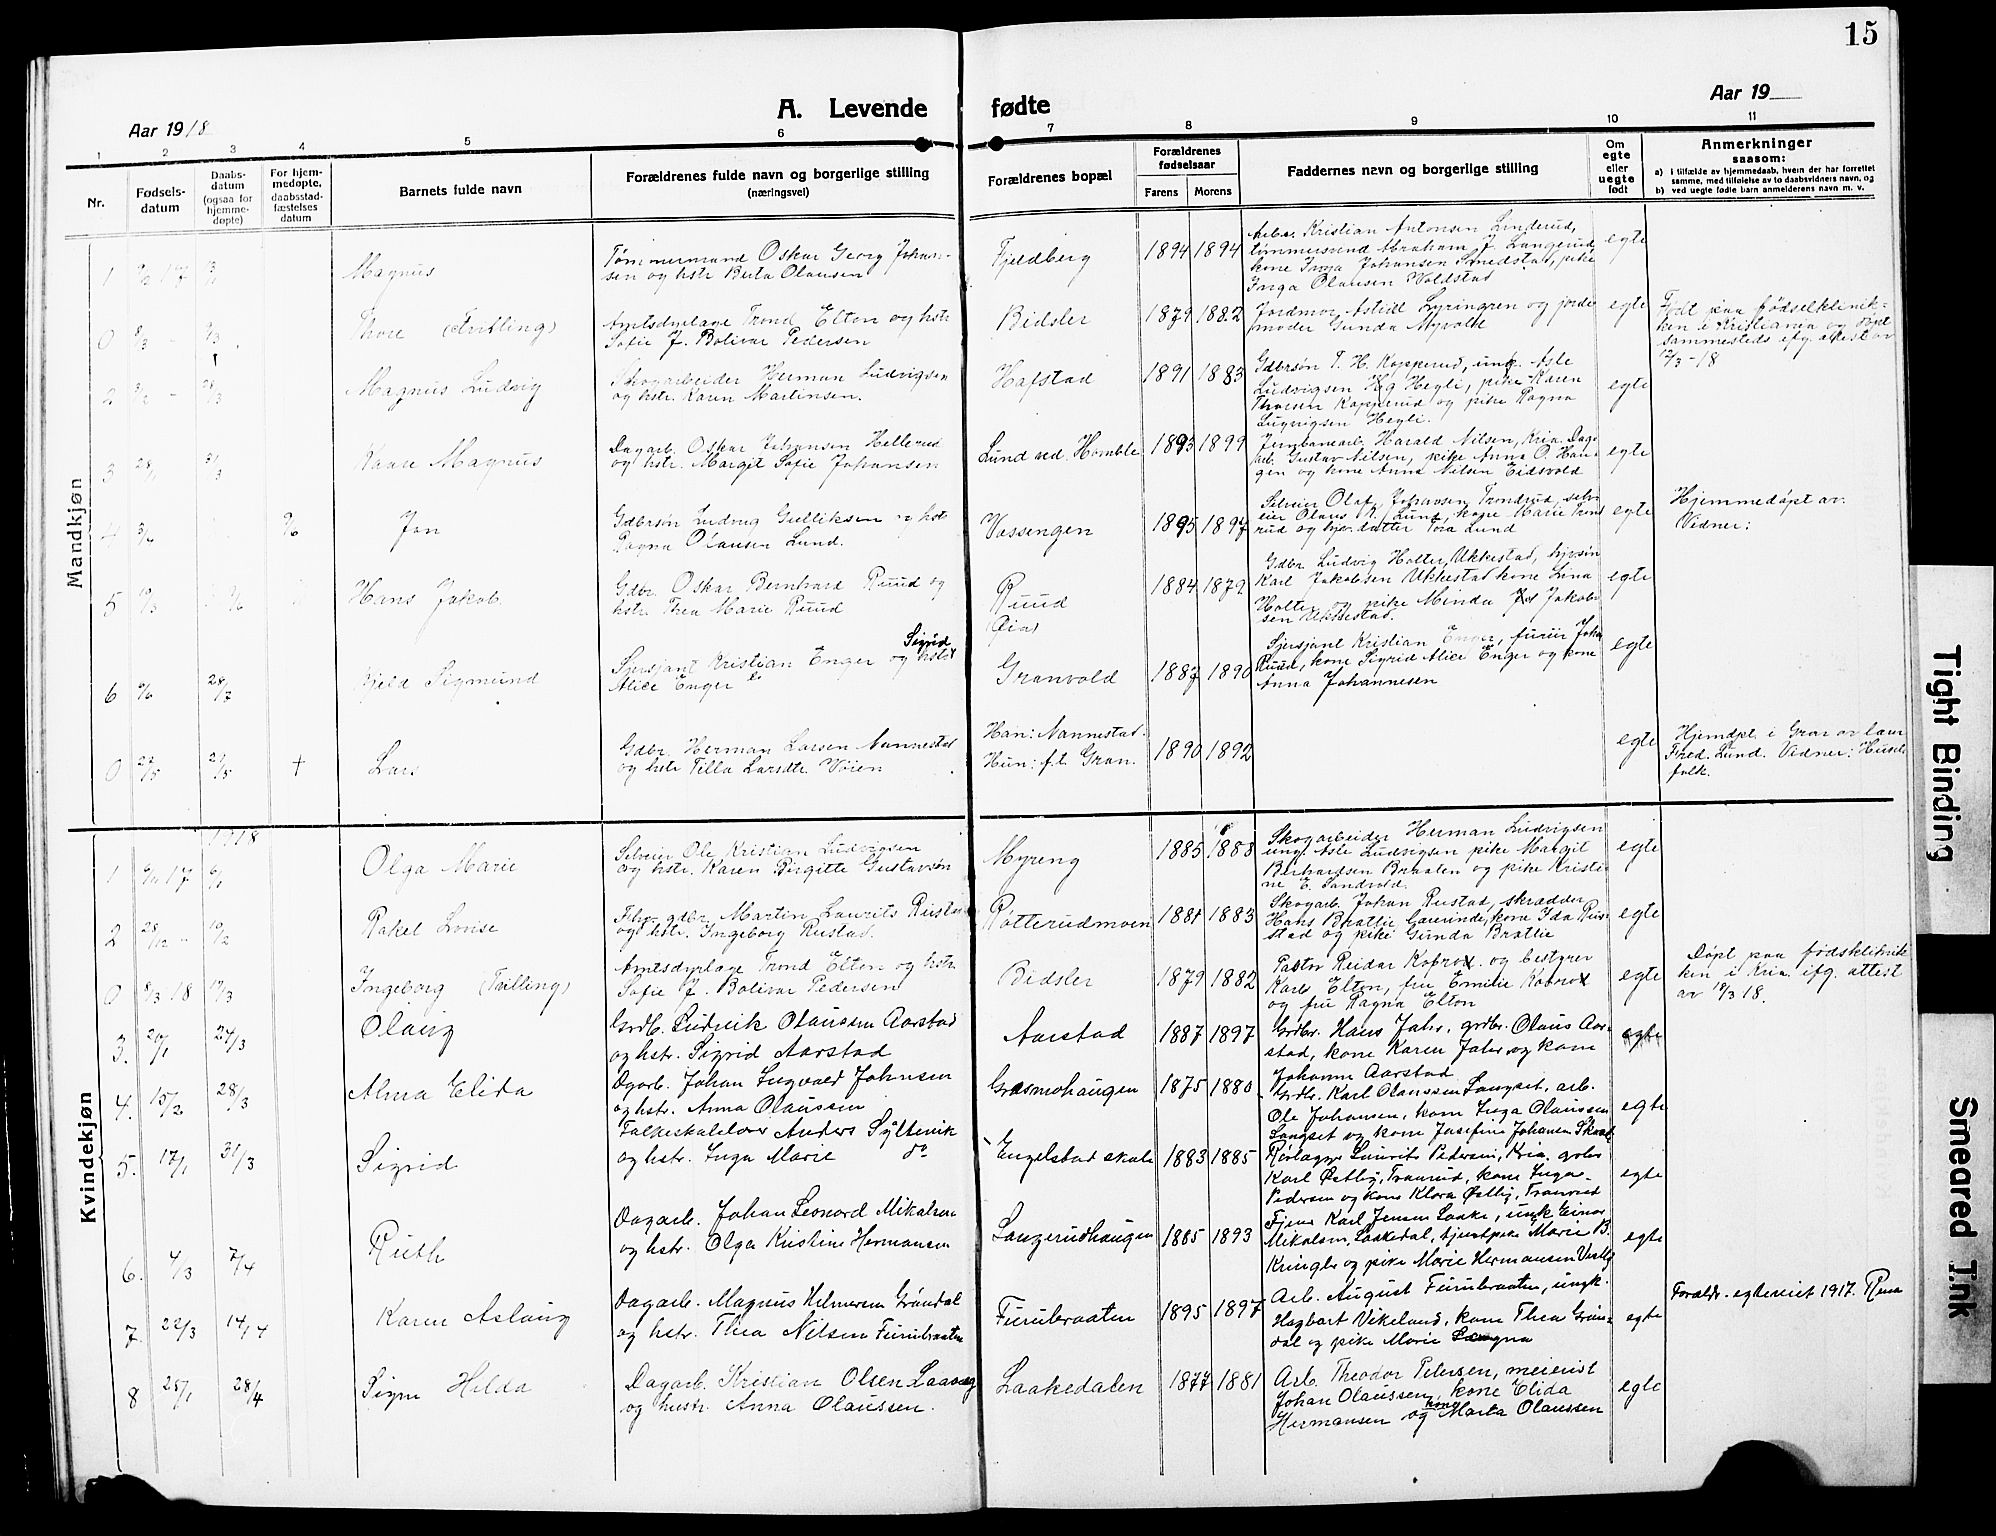 15
A. Levende fødte
Aar 1918
Aar 19
1 2 3 4 5 6 7 8 9 10 11
Nr.
Fødsels-
datum
Daabs-
datum
(ogsaa for
hjemme-
døpte)
For hjem-
medøpte,
daabsstad-
fæstelses
datum
Barnets fulde navn
Forældrenes fulde navn og borgerlige stilling
(næringsvei)
Forældrenes bopæl
Forældrenes
fødselsaar
Farens Morens
Faddernes navn og borgerlige stilling
Om
egte
eller
uegte
født
Anmerkninger
saasom:
a) i tilfælde av hjemmedaab, hvem der har forrettet
samme, med tilføielse av to daabsvidners navn, og
b) ved uegte fødte barn anmelderens navn m. v.
Mandkjøn
1 Magnus
Tømmermand Oskar Georg Johan-
sen og hstr Berta Olausen
Fjeldberg 1894 1894
Arb. Kristian Antonsen Linderud,
tømmermand Abraham J. Langerud,
kone Inga Johansen Smedstad, pike
Inga Olausen Woldstad
egte
0 8/3 Thore (Tvilling)
Amtsdyrlæge Trond Elton og hstr
Sofie J. Bolivar Pedersen
Bidsler 1879 1882
Jordmor Astidl Syringren og jorde
moder Gunda Myrvolt
egte
Født paa fødselklinik-
ken i Kristiania og døpt
sammesteds ifg. attest av
12/3-18
2 28/3 Magnus Ludvig
Skogarbeider Herman Ludvigsen
og hstr. Karen Martinsen.
Hafstad 1891 1883
Gdbrsøn T. H. Kopperud, ungk. Asle
Ludvigsen Hg Hegli, pike Karen
Thoresen Kopperud og pike Ragna
Ludvigsen Hegli.
egte
3 28/1 31/3 Kaare Magnus
Dagarb. Oskar Johansen Hellerud
og hstr. Margit Sofie Johansen
Lund ved Homble 1895 1899
Jernbanearb. Harald Nilsen, Kria. Dag-
arb. Gustav Nilsen, pike Anna O. Han-
gen og kone Anna Nilsen Eidsvold
egte
4 Jon
Gdbrsøn Ludvig Gulliksen og hstr
Ragna Olausen Lund.
Vassengen 1895 1897
Selveier Olaf Johansen Trondrud, selv
eier Olaus K. Lund, kone Marie Trond
rud og hjv. datter Tora Lund
egte
Hjemmedøpt av:
Vidner:
5 10/3 Hans Jakob.
Gdbr. Oskar Bernhard Ruud og
hstr. Thea Marie Ruud
Ruud
(Øia)
1884 1879
Gdbr Ludvig Holter, Ukkestad, hjvsøn
Karl Jakobsen Ukkestad kone Lina
Holter og pike Minda Jakob-
sen Ukkestad.
egte
6 28/7 Kjeld Sigmund
Sigrid
Sjersjant Kristian Enger og hstr
Alice Enger
Granvold 1887 1890
Sjersjant Kristian Enger, furiir Joha
Ruud, kone Sigrid Alice Enger og kone
Anna Johannesen
egte
0 22/5 21/5 + Lars
Gdbr. Herman Larsen Nannestad
og hstr Tilla Larsdtr Vøien.
Han: Nannestad.
Hun: f. t. Gran.
1890 1892
egte
Hjemdpt. i Gran av
Fred. Lund. Vidner: Husets
folk.
Kvindekjøn
1918
1 Olga Marie
Selveier Ole Kristian Ludvigsen
og hstr. Karen Birgitte Gustavsen
Myreng 1885 1888
Skogarbeider Herman Ludvigsen
ung. Asle Ludvigsen pike Margit
Berhardsen Braaten og pike Kristi-
ne E. Sandvold.
egte
2 28/12 10/2 Rakel Lovise
gdbr. Martin Laurits Rustad
og hstr. Ingeborg Rustad.
Rotterudmoen 1881 1883
Skogarb. Johan Rustad, skrædder
Hans Brattlie Gaurinde, kone Ida Rus-
stad og pike Gunda Bratlie
egte
0 8/3 18 17/3 Ingeborg (Tvilling)
Amtsdyrlæge Trond Elton og hstr.
Sofie J. Bolivar Pedersen
Bidsler 1879 1882
Pastor Reidar Kobro. og bestyrer
Karls Elton, fru Emilie Kobro
og fru Ragna Elton
egte
Døpt paa fødsklinik
ken i Kria. ifg. attest
av 19/3 18.
3. 20/1 24/3 Olaug
Grdb. Ludvik Olaussen Aarstad
og hstr. Sigrid Aarstad
Aarstad 1887 1897
Grdbr. Hans Jahr, grdbr. Olaus Aar-
stad, kone Karen Jahr og kone
Johanne Aarstad
egte
4. 15/2 28/3 Alma Elida
Dgarb. Johan Ingvald Johnsen
og hstr. Anna Olaussen
Grasmohaugen 1875 1880
Grdbr. Karl Olaussen Langset, arb.
Ole Johansen, kone Inga Olaussen
Langset og kone Josefine Johansen
egte
5. 17/1 31/3 Sigrid
Folkeskolelærer Anders Syltevik
og hstr. Inga Marie do
Engelstad skole 1883 1885
Rørlægger Laurits Pedersen, Kria. grdbr
Karl Østby, Tranrud, kone Inga
Pedersen og kone Klara Østby, Tranrud
egte
6. 4/3 7/4 Ruth
Dagarb. Johan Leonard Mikalsen
og hstr. Olga Kristine Hermansen
Langerudhaugen 1885 1893
Fjener Karl Jensen Laake, ungk Einar
Mikalsen, Laakedal, tjenstpike Marie B.
Kringler og pike Marie Hermansen
egte
7. 22/3 14/4 Karen Aslaug
Dagarb. Magnus Hilmersen Grøndal
og hstr. Thea Nilsen Furubraaten
Furubraaten 1895 1897
Arb. August Furubraaten, ungk.
Hagbart Vikeland, kone Thea Grøn-
dal og pike Marie
egte
Foreldr. egteviet 1917.
8 25/1 28/4 Signe Hilda
Dagarb. Kristian Olsen Laache
og hustr. Anna Olaussen.
Laakedalen 1877 1881
Arb. Theodor Petersen, meierist
Johan Olaussen, kone Elida
Hermansen og kone Marta Olaussen
egte
Tight Binding
Smeared Ink